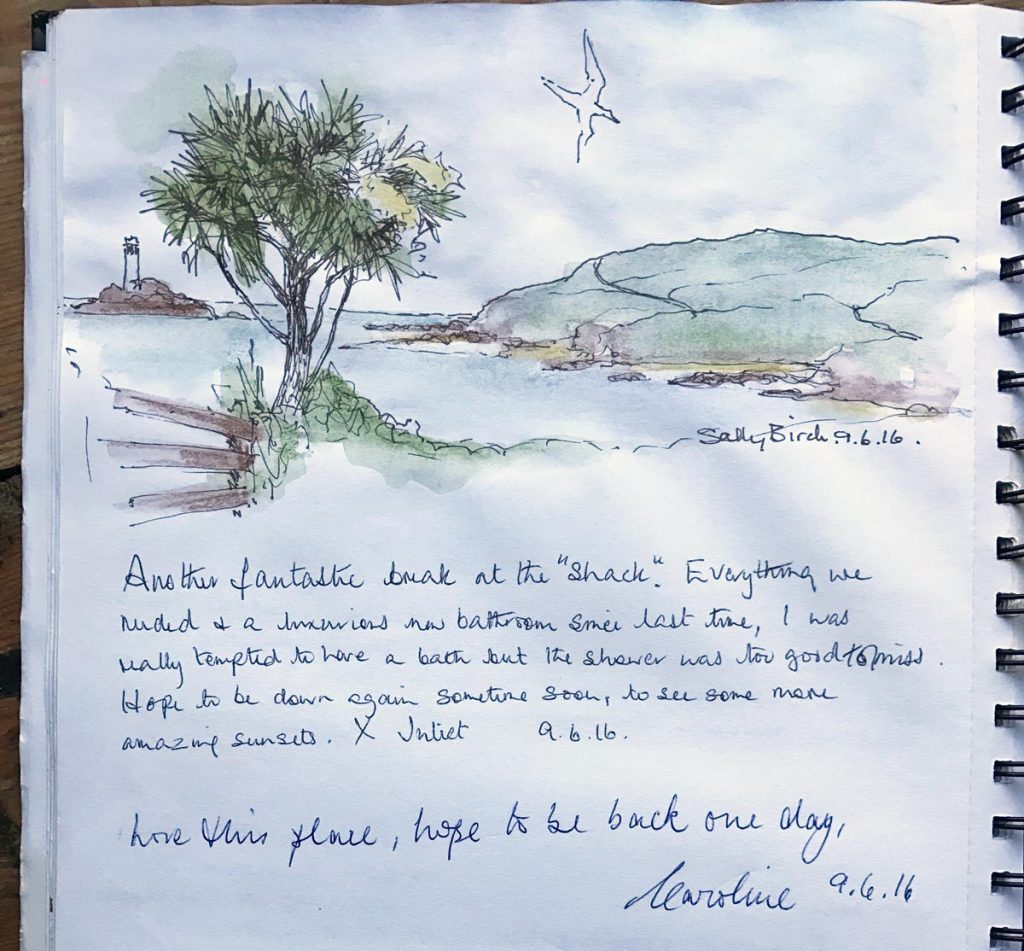 Sally Birch 9.6.16.
Another fantastic break at the "Shack". Everything we
needed & a luxurious new bathroom since last time, I was
really tempted to have a bath but the shower was too good to miss.
Hope to be down again sometime soon, to see some more
amazing sunsets. X Juliet 9.6.16.
Love this place, hope to be back one day,
Caroline 9.6.16